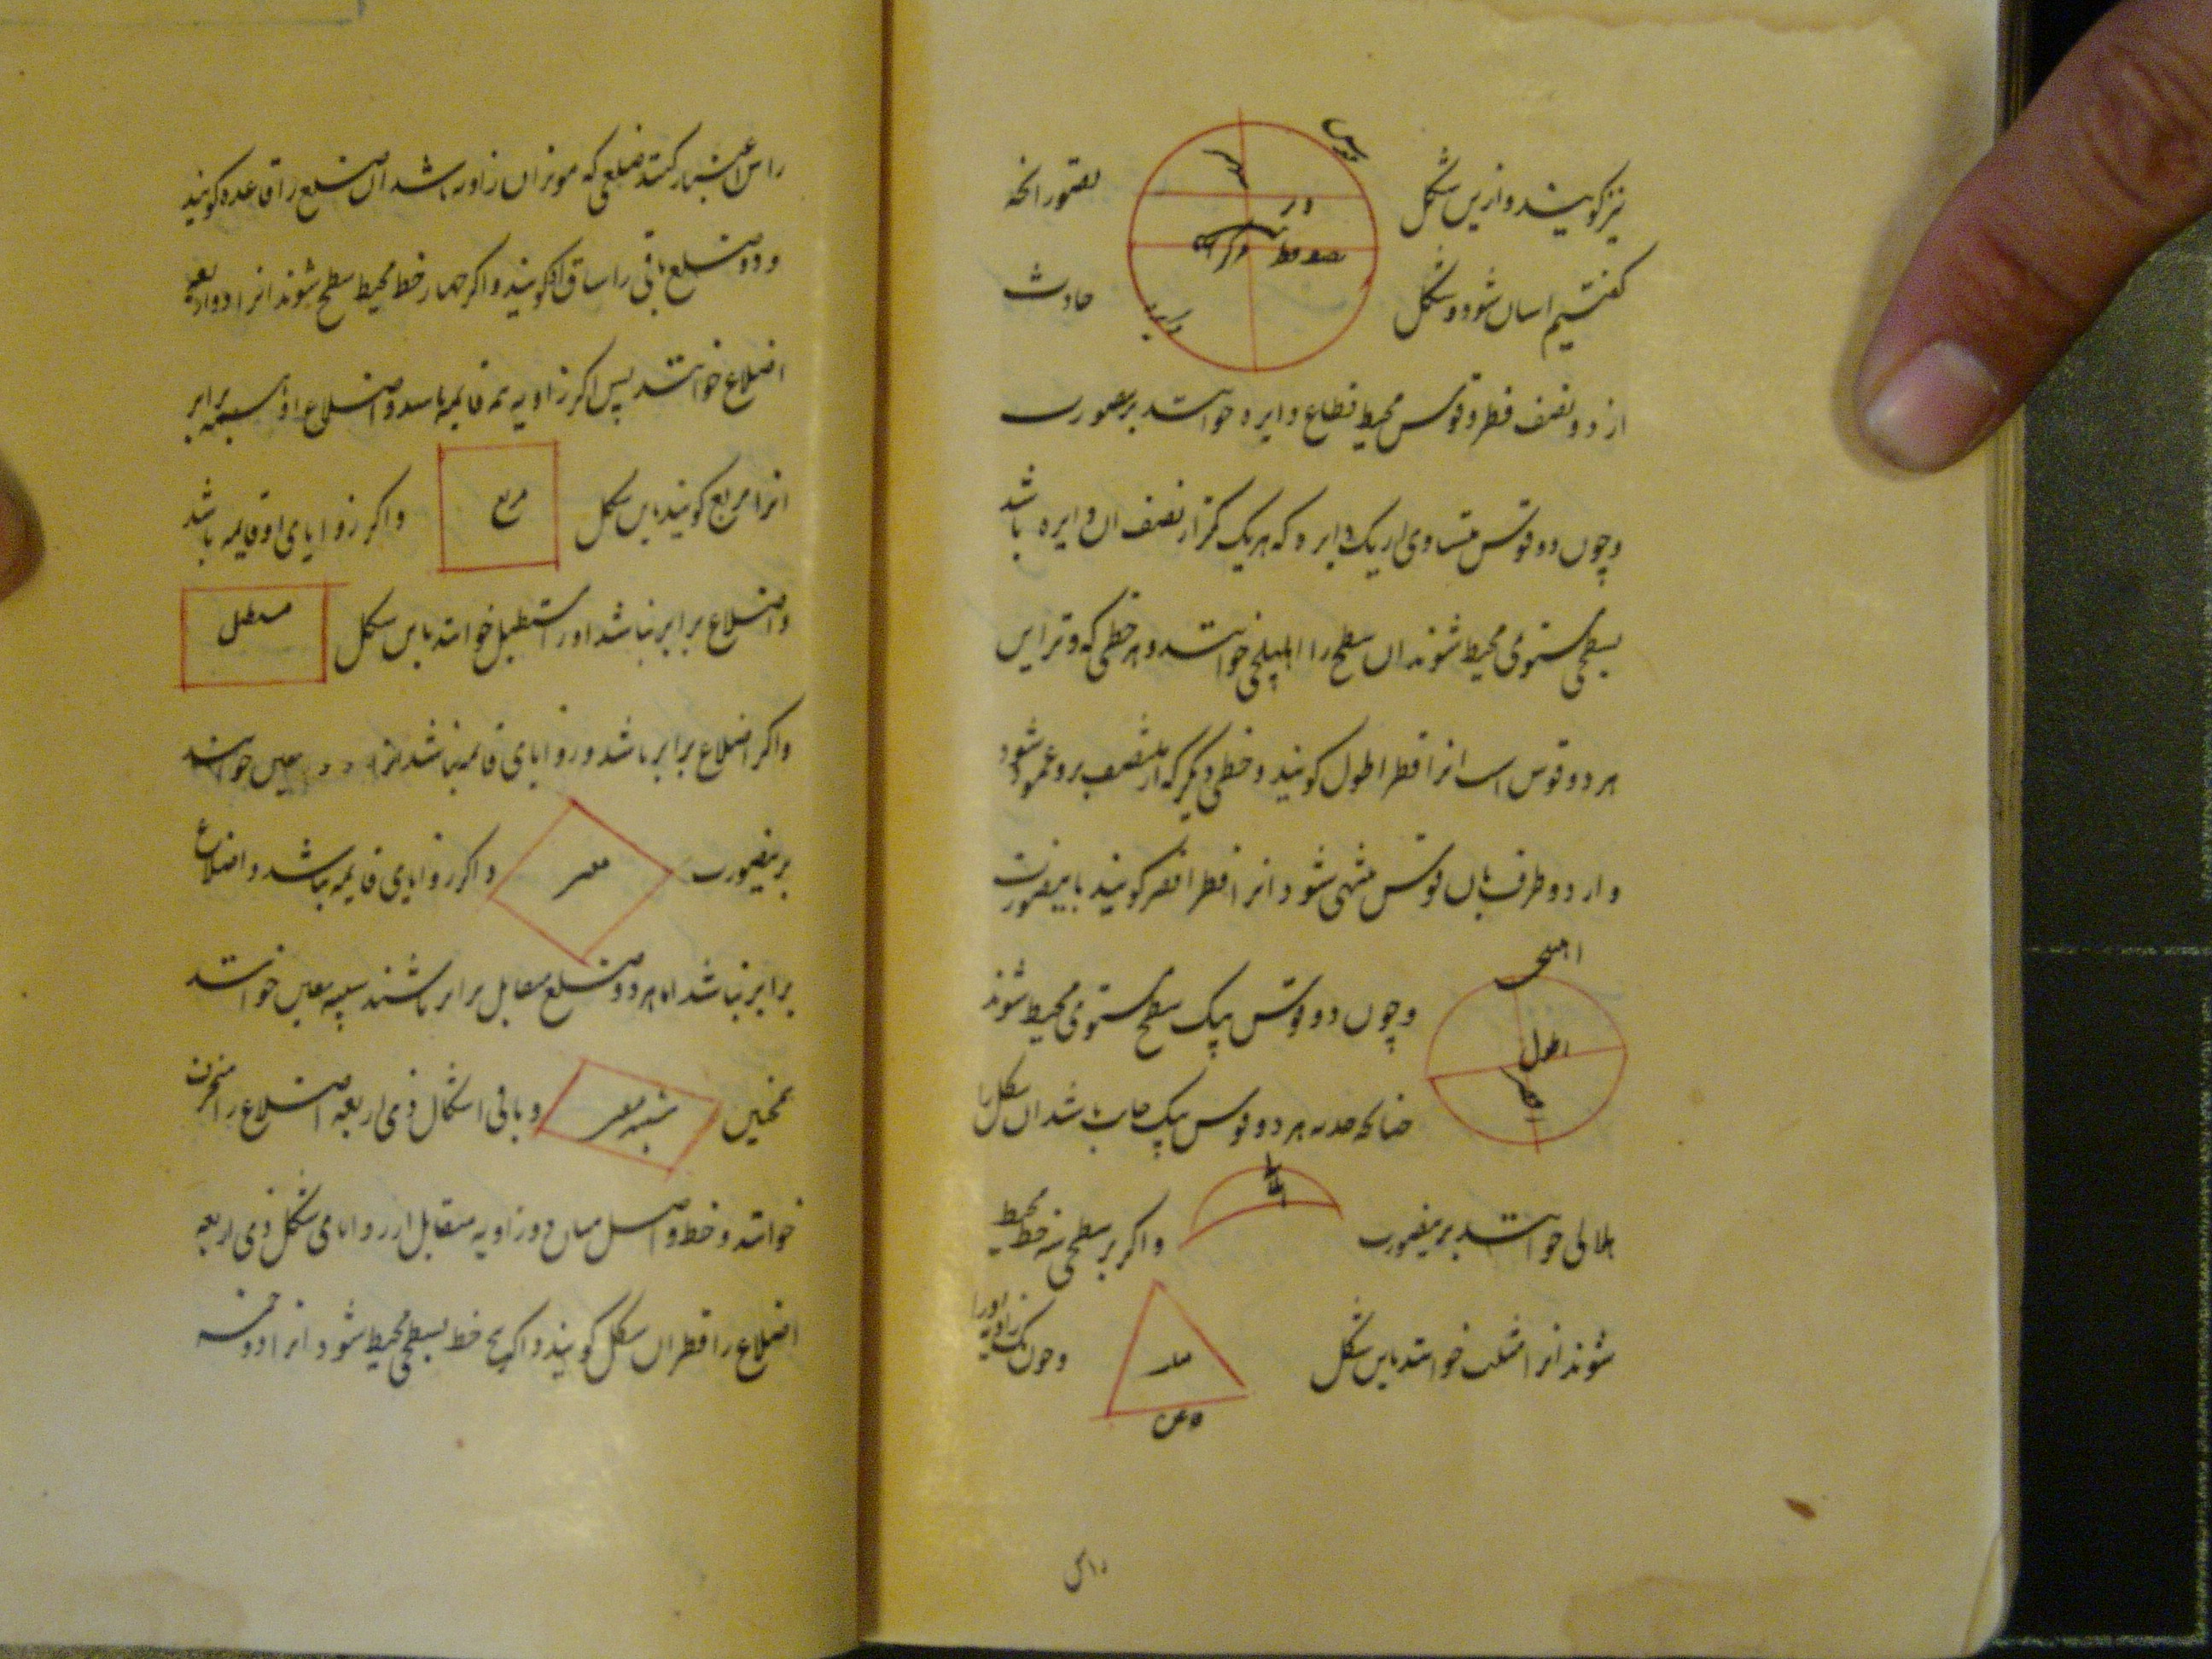 نیز کویند و ازین شکل تصور انچه
کفتیم اسان شود و شکل حادث
قوس
مرکز
دایره
از دو نصف قطر و قوس محیط قطاع دایره خوانند برین صورت
و چون دو قوس متساوی از یک دایره که هر یک کمتر از نصف ان دایره باشد
بسطحی مستوی محیط شوند ان سطح را اهلیلجی خوانند و هر خطی که وتر این
هر دو قوس است انرا قطر اطول کویند و خطی دیکر که از منتصف برو عمود شود
و از دو طرف بان قوس منتهی شود انرا قطر اقصر کویند باینصورت
اطول
و چون دو قوس بیک سطح مستوی محیط شوند
چنانکه حدبه هر دو قوس بیک جانب باشد ان شکل را
هلالی خوانند برینصورت و اکر بر سطحی سه خط محیط
شوند انرا مثلث خوانند باین شکل و چون یک زاویه را
راس
راس اعتبار کنند ضلعی که موتر ان زاویه باشد ان ضلع را قاعده کویند
و دو ضلع باقی را ساق کویند و اکر چهار خط محیط سطح شوند انرا ذو اربعه
اضلاع خوانند پس اکر زاویه همه قایمه باشد و اضلاع او همه برابر
انرا مربع کویند باین شکل مربع و اکر زوایای او قایمه باشد
و اضلاع برابر نباشد او را مستطیل خوانند باین شکل مستطیل
و اکر اضلاع برابر باشد و زوایای قایمه نباشد انرا معین خوانند
برینصورت معین و اکر زوایای قایمه نباشد و اضلاع
برابر نباشد اما هر دو ضلع مقابل برابر باشند شبیه معین خوانند
همچنین شبیه معین و باقی اشکال ذی اربعه اضلاع را منحرف
خوانند و خط واصل میان دو زاویه متقابل از زوایای شکل ذی اربعه
اضلاع را قطر ان شکل کویند و اکر پنج خط بسطحی محیط شود انرا ذو خمسه